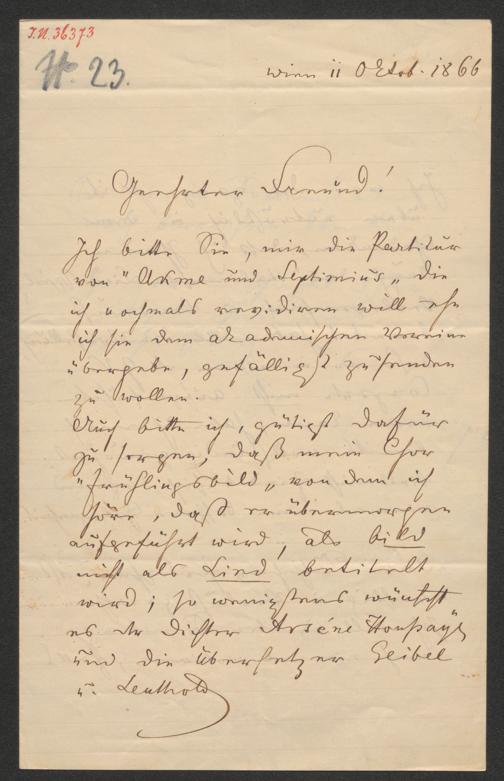 I.N. 36373
H. 23.
Wien 11 Oktob. 1866
Geehrter Freund!
Ich bitte Sie, mir die Partitur
von "Akme und Septimius" die
ich nochmals revidiren will ehe
ich sie dem akademischen Vereine
übergebe, gefälligst zusenden
zu wollen.
Auch bitte ich, gütigst dafür
zu sorgen, daß mein Chor
"Frühlingsbild" von dem ich
höre, daß er übermorgen
aufgeführt wird, als bild
nicht als Lied betitelt
wird; so wenigstens wünscht
es der Dichter Arséne Houssaye
und die Übersetzer Geibel
u. Leuthold